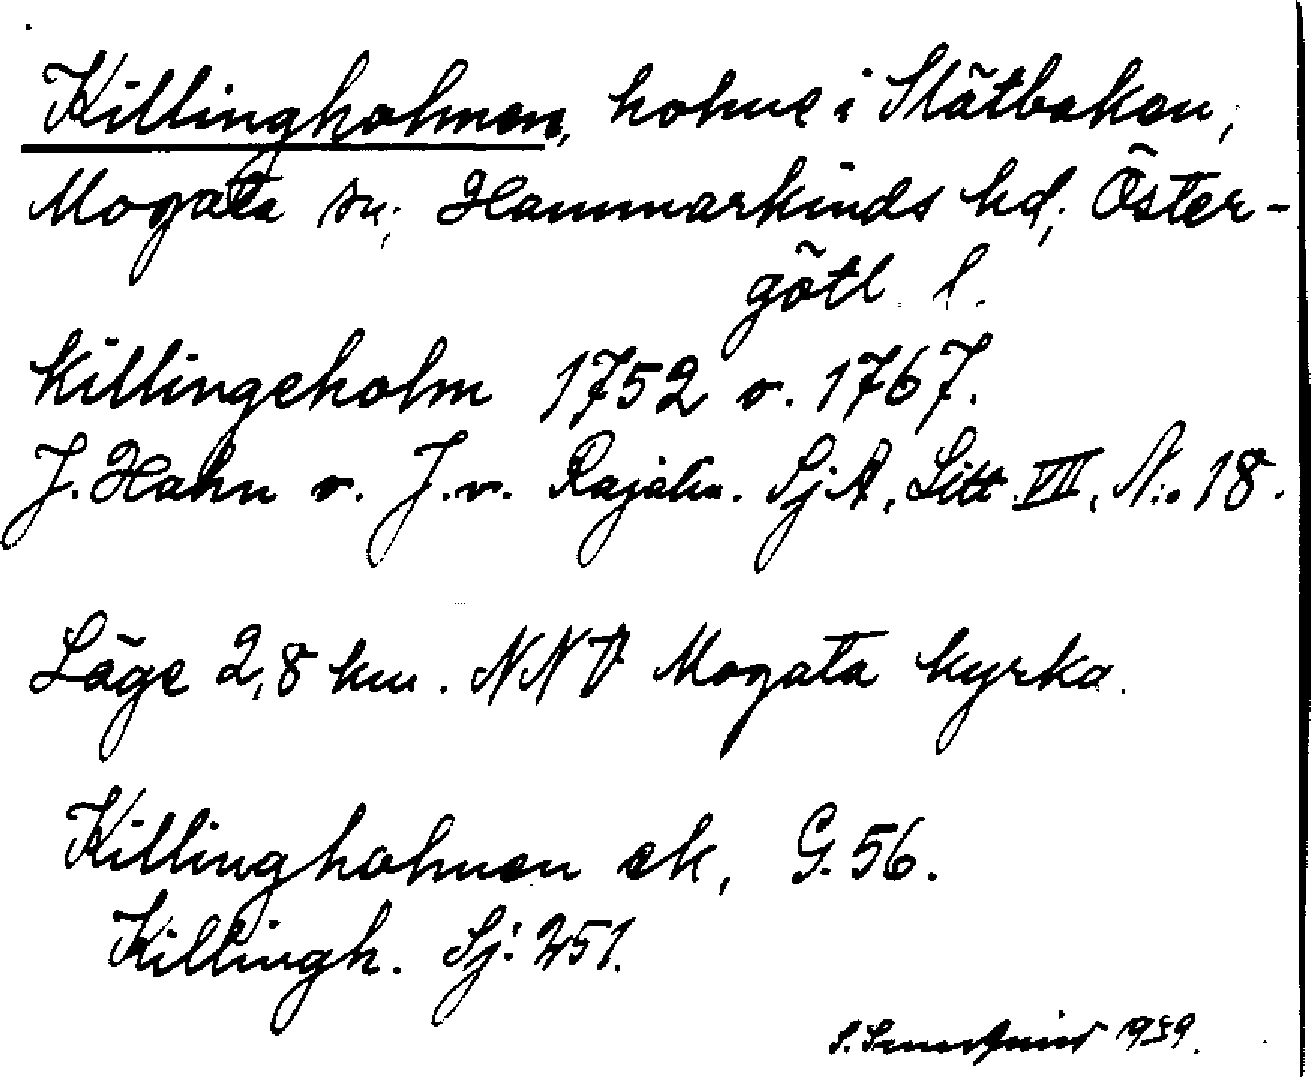 Killingholmen, holme i Slätbaken,
Mogata sn, Hammarkinds hd, Öster-
götl. l.
Killingeholm 1752 o. 1767.
J. Hahn o. J. v. Rajalin. SjA, Litt. VII, N:o 18.
Läge 2,8 km. NNV Mogata kyrka.
Killingholmen ek, G. 56.
Killingh. Sj: 251.
1939.